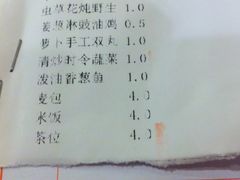 虫草花炖野生 1.0
姜葱淋豉油鸡 0.5
萝卜手工双丸 1.0
清炒时令蔬菜 1.0
泼油香葱鱼 1.0
麦包 4.0
米饭 4.0
茶位 4.0